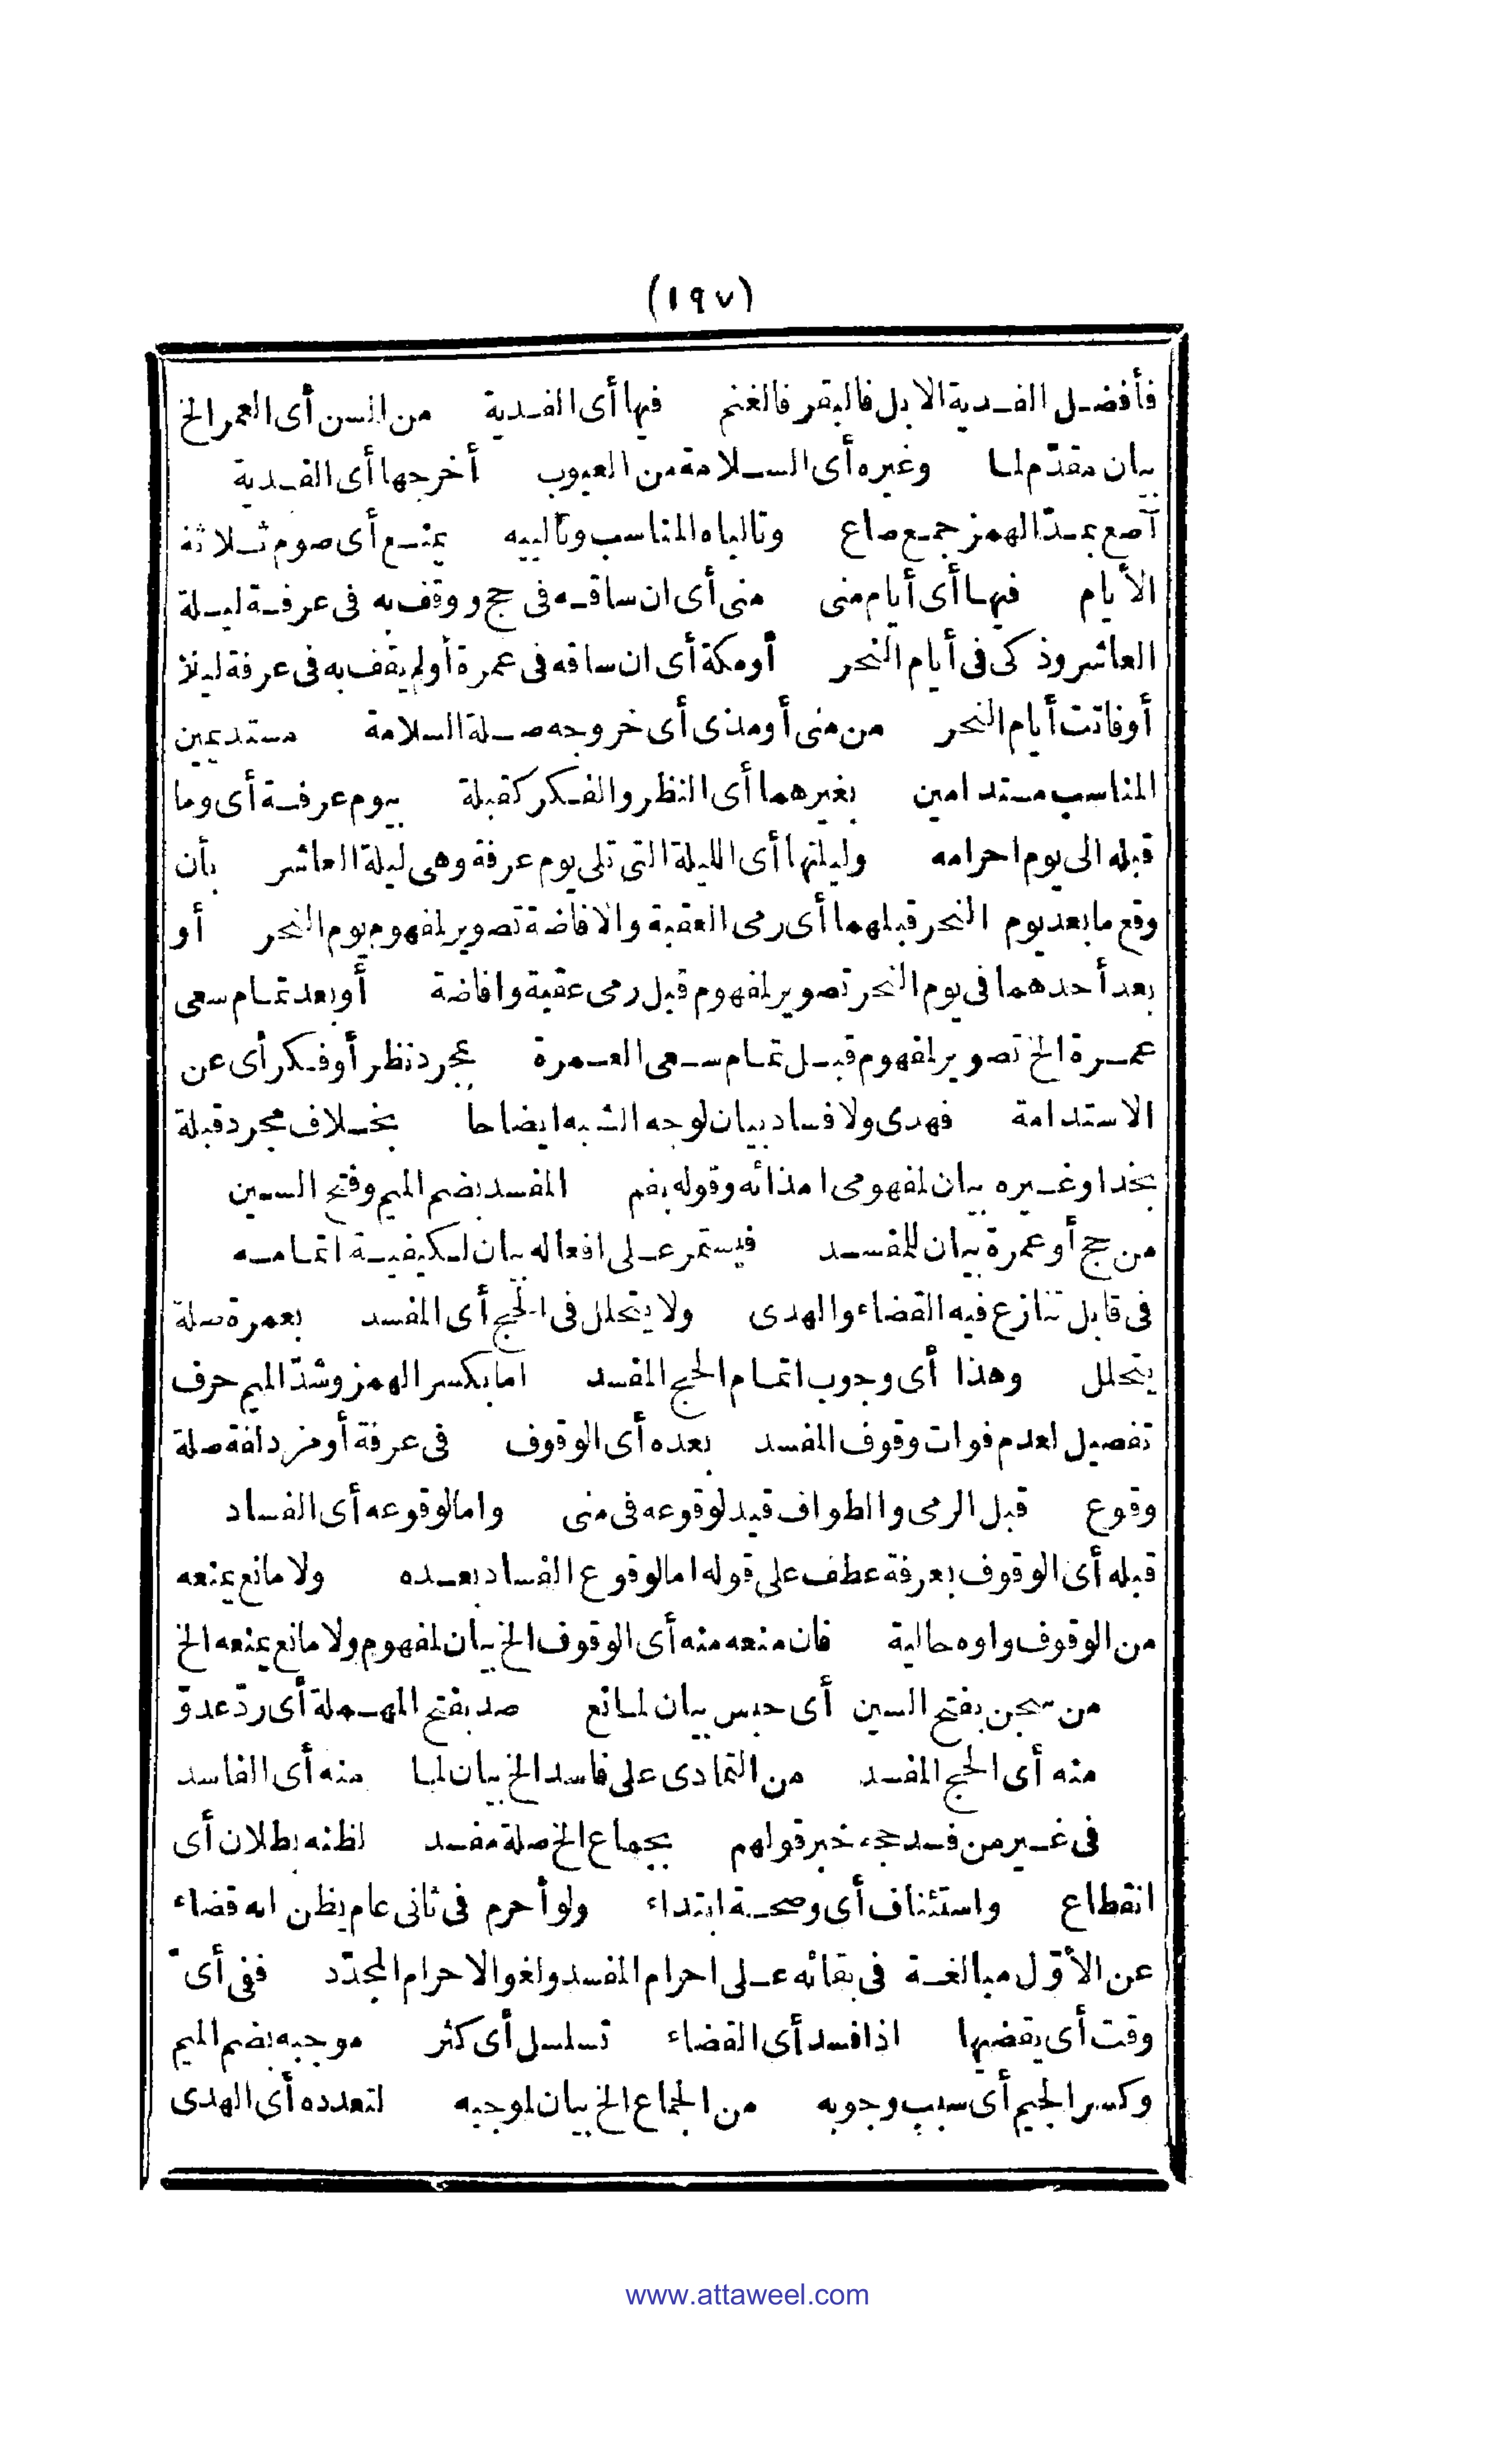 (١٩٧)
فأفضل الفدية الابل فالبقر فالغنم فيها أى الفدية من السن أى العمر الخ
بيان مقدّم لما وغيره أى السلامة من العيوب أخرجها أى الفدية
آصع بمدّ الهمز جمع صاع وتالياه المناسب وتالييه بمنع أى صوم ثلاثة
الأيام فيها أى أيام منى منى أى ان ساقه فى حج ووقف به فى عرفة ليلة
العاشر وذكى فى أيام النحر أومكة أى ان ساقه فى عمرة أولم يقف به فى عرفة ليلا
أوفاتت أيام النحر من منى أومذى أى خروجه صلة السلامة مستديمين
المناسب مستدامين بغيرهما أى النظر والفكر كقبلة بيوم عرفة أى وما
قبله الى يوم احرامه وليلتها أى الليلة التى تلى يوم عرفة وهى ليلة العاشر بأن
وقع ما بعد يوم النحر قبلهما أى رمى العقبة والافاضة تصوير لمفهوم يوم النحر أو
بعد أحدهما فى يوم النحر تصوير لمفهوم قبل رمى عقبة وافاضة أوبعد تمام سعى
عمرة الخ تصوير لمفهوم قبل تمام سعى العمرة بمجرد نظر أوفكر أى عن
الاستدامة فهدى ولا فساد بيان لوجه الشبه ايضاحا بخلاف مجرد قبلة
بخدا وغيره بيان لمفهومى امذائه وقوله بفم المفسد بضم الميم وفتح السين
من حج أوعمرة بيان للمفسد فيستمر على افعاله بيان لكيفية اتمامه
فى قابل تنازع فيه القضاء والهدى ولا يتحلل فى الحج أى المفسد بعمرة صلة
يتحلل وهذا أى وجوب اتمام الحج المفسد اما بكسر الهمز وشدّ الميم حرف
تفصيل لعدم فوات وقوف المفسد بعده أى الوقوف فى عرفة أومزدلفة صلة
وقوع قبل الرمى والطواف قيد لوقوعه فى منى واما لوقوعه أى الفساد
قبله أى الوقوف بعرفة عطف على قوله اما لوقوع الفساد بعده ولا مانع يمنعه
من الوقوف واوه حالية فان منعه منه أى الوقوف الخ بيان لمفهوم ولا مانع يمنعه الخ
من سجن بفتح السين أى حبس بيان لمانع صد بفتح المهملة أى ردّ عدوّ
منه أى الحج المفسد من التمادى على فاسد الخ بيان لما منه أى الفاسد
فى غير من فسد حجه خبر قولهم بجماع الخ صلة مفسد لظنه بطلان أى
انقطاع واستئناف أى وصحة ابتداء ولو أحرم فى ثانى عام يظن انه قضاء
عن الأوّل مبالغة فى بقائه على احرام المفسد ولغو الاحرام المجدّد ففى أىّ
وقت أى يقضيها اذا فسد أى القضاء تسلسل أى كثر موجبه بضم الميم
وكسر الجيم أى سبب وجوبه من الجماع الخ بيان لموجبه لتعدده أى الهدى
www.attaweel.com